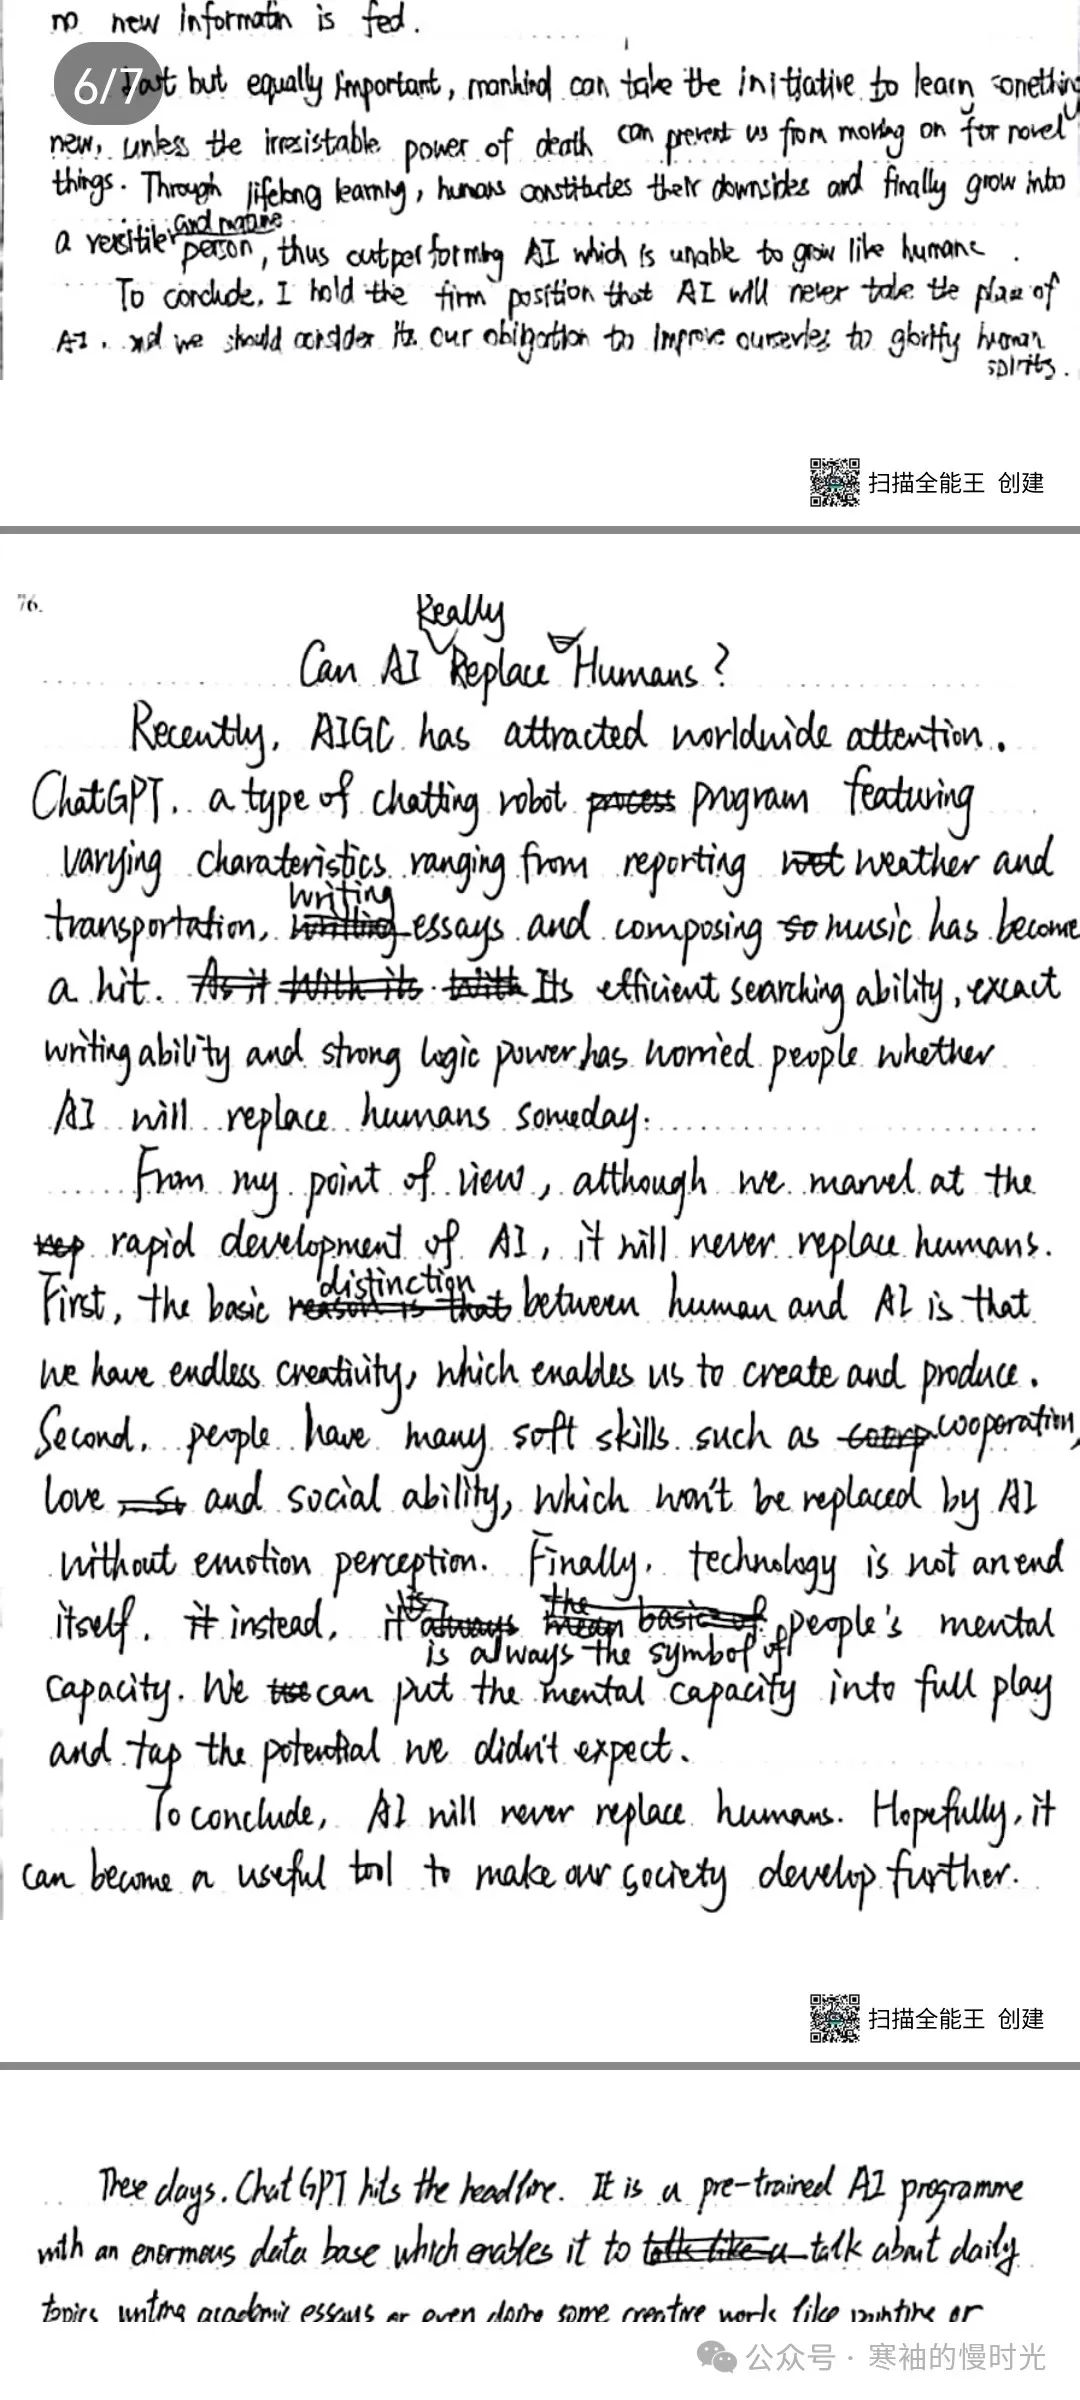 no new informatin is fed.
6/7
but equally important, mankind can take the initiative to learn something
new, unless the irresistable power of death can prevent us from moving on for novel
things. Through lifelong learning, humans constitutes their downsides and finally grow into
and mature
a versitiler person, thus outperforming AI which is unable to grow like humans.
To conclude, I hold the firm position that AI will never take the place of
AI, and we should consider it our obligation to improve ourselves to glorify human
spirits.
扫描全能王 创建
76.
Really
Can AI Replace Humans?
Recently, AIGC has attracted worldwide attention.
ChatGPT, a type of chatting robot process program featuring
varying charateristics ranging from reporting wet weather and
writing
transportation, writing essays and composing so music has become
a hit. As it With its with Its efficient searching ability, excact
writing ability and strong logic power has worried people whether
AI will replace humans someday.
From my point of view, although we marvel at the
rep rapid development of AI, it will never replace humans.
distinction
First, the basic reason is that between human and AI is that
we have endless creativity, which enables us to create and produce.
Second, people have many soft skills such as cooperation,
love and social ability, which won't be replaced by AI
without emotion perception. Finally, technology is not an end
itself, it instead, it always mean the basic of people's mental
is always the symbol of
capacity. We use can put the mental capacity into full play
and tap the potential we didn't expect.
To conclude, AI will never replace humans. Hopefully, it
can become a useful tool to make our society develop further.
扫描全能王 创建
These days, ChatGPT hits the headline. It is a pre-trained AI programme
with an enormous data base which enables it to talk like a talk about daily
topics, writing academic essays or even doing some creative work like painting or
公众号 · 寒袖的慢时光